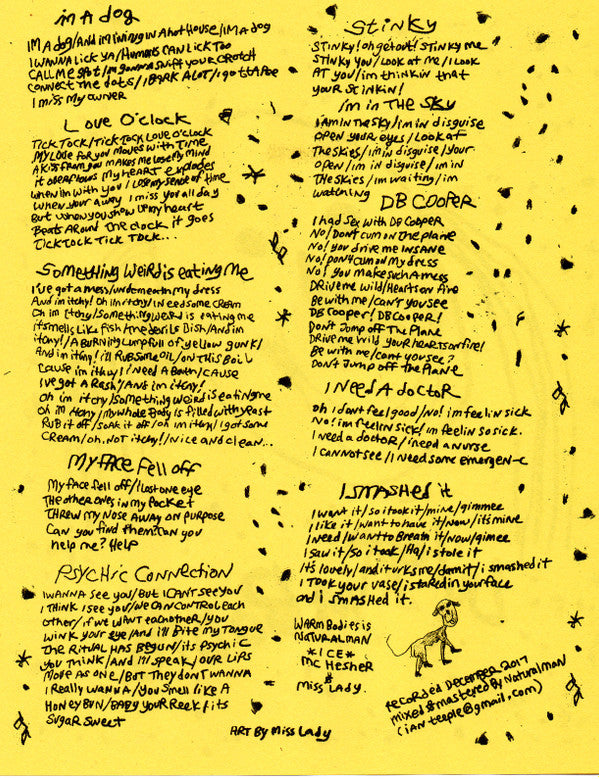 im A dog
IM A dog/And im living in A hot House/IM A dog
I WANNA Lick YA/Humans CAN Lick Too
CALL me spot/im gonna sniff your CROTCH
CONNECT THE dots/I BARK A LOT/I gotta Pee
I miss My owner
Love O'clock
TICK TOCK/TICK TOCK LOVE O'clock
MY Love for you moves with Time
A kiss from you makes me lose My MIND
it overflows my heart explodes
when im with you I lose my sense of time
when your away I miss you all day
But when you show up my heart
Beats AROUND The clock it goes
TICK TOCK TICK TOCK...
Something Weird is eating Me
I've got a mess/underneath my dress
And im itchy! Oh im itchy/IN eed some CREAM
Oh im Itchy/Something weird is eating me
it smells like fish/the devils Dish/And im
itchy!/A Burning Lump full of yellow gunk/
And im itchy! i'll Rub some oil/on This Boil
Cause im itchy/I need A BATH/CAUSE
I've got A Rash/And im itchy!
Oh im itchy/Something weird is eating me
Oh im itchy/my whole Body is filled with yeast
Rub it off/soak it off/oh im itchy/I got some
CREAM/oh NOT itchy!/Nice and clean...
My FACE Fell off
My face fell off/I lost one eye
The other ones in my Pocket
THREW my NOSE AWAY on PURPOSE
Can you find them can you
help me? Help
PSYCHIC CONNECTION
I WANNA see you/But I CANT see you
I THINK I see you/we CAN CONTROL each
other/if we want eachother/you
wink your eye And I'll Bite my Tongue
The RITUAL HAS Begun/its Psychic
You Think/And I'll speak/OUR Lips
Move as one/But They dont WANNA
I Really WANNA/You smell like A
Honey Bun/BABY your Reek/its
Sugar Sweet
STINKY
STINKY! oh get out! STINKY me
STINKY you/Look at me/I Look
AT you/im thinkin that
your stinkin!
I'm in THE SKY
I AM IN THE SKY/im in disguise
open your eyes/Look at
The skies/im in disguise/your
open/im in disguise/im in
THE skies/im waiting/im
watching
DB COOPER
I had sex with DB COOPER
No! Dont cum on the plane
No! you drive me INSANE
No! Dont cum on my dress
No! you make such a mess
DRIVE me wild/Hearts on fire
Be with me/cant you see
DB COOPER! DB COOPER!
Don't Jump off The Plane
DRIVE me wild your hearts on fire!
Be with me/cant you see?
Don't Jump off the Plane
I Need A doctor
Oh I dont feel good/No! im feelin sick
No! im feelin sick! im feelin so sick.
I need a doctor/i need a nurse
I can not see/I need some emergen-c
I SMASHed it
I want it/so i took it/mine/gimmee
I like it/want to have it/now/its mine
I need/I want to Breath it/now/gimee
I saw it/so i took/Ha/i stole it
Its lovely/and it urks me/damit/i smashed it
I took your vase/i stared in your face
and i smASHed it.
WARM Bodies is
NATURALMAN
*ICE*
MC HESHER
&
Miss Lady.
recorded December 2017
mixed & mastered By Naturalman
(ian.teeple@gmail.com)
ART By Miss Lady